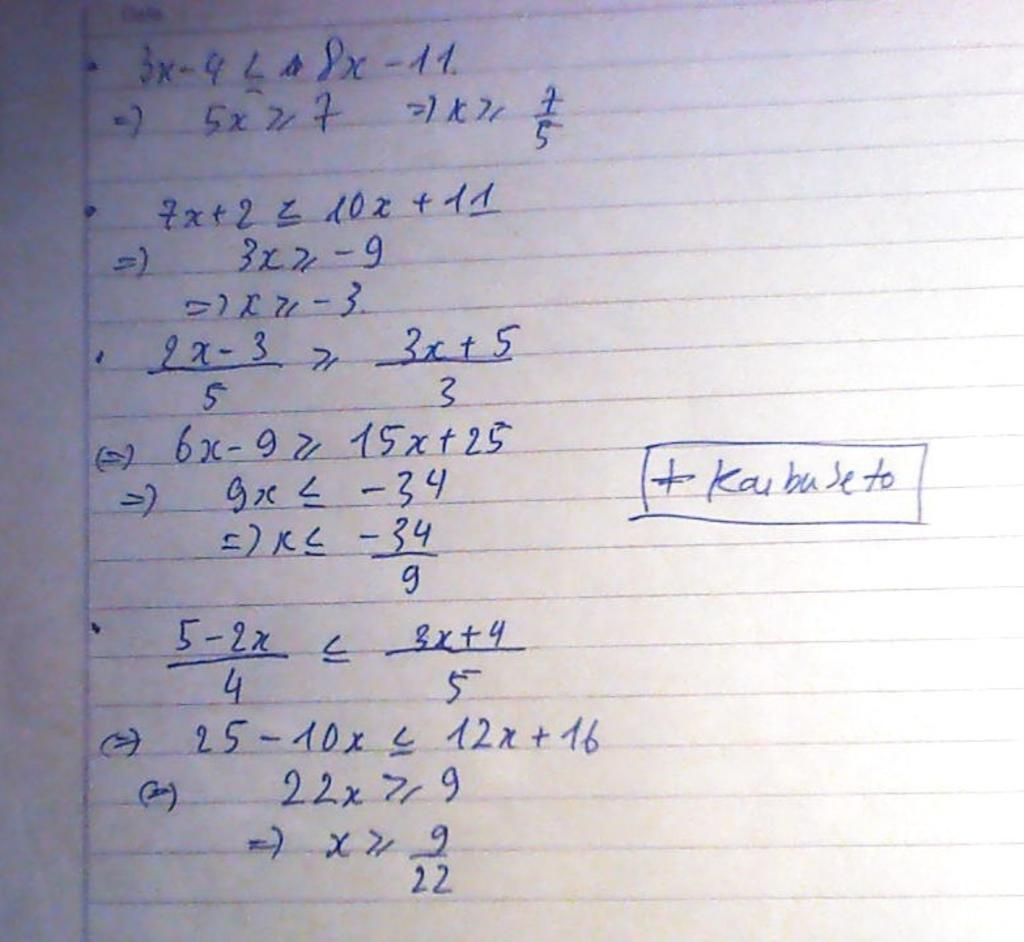 • 3x-4 ≤ 8x-11.
=> 5x ≥ 7 => x ≥ 7/5
• 7x+2 ≤ 10x+11
=> 3x ≥ -9
=> x ≥ -3.
• (2x-3)/5 ≥ (3x+5)/3
(=) 6x-9 ≥ 15x+25
=> 9x ≤ -34
=> x ≤ -34/9
• (5-2x)/4 ≤ (3x+4)/5
(=) 25-10x ≤ 12x+16
(=) 22x ≥ 9
=> x ≥ 9/22